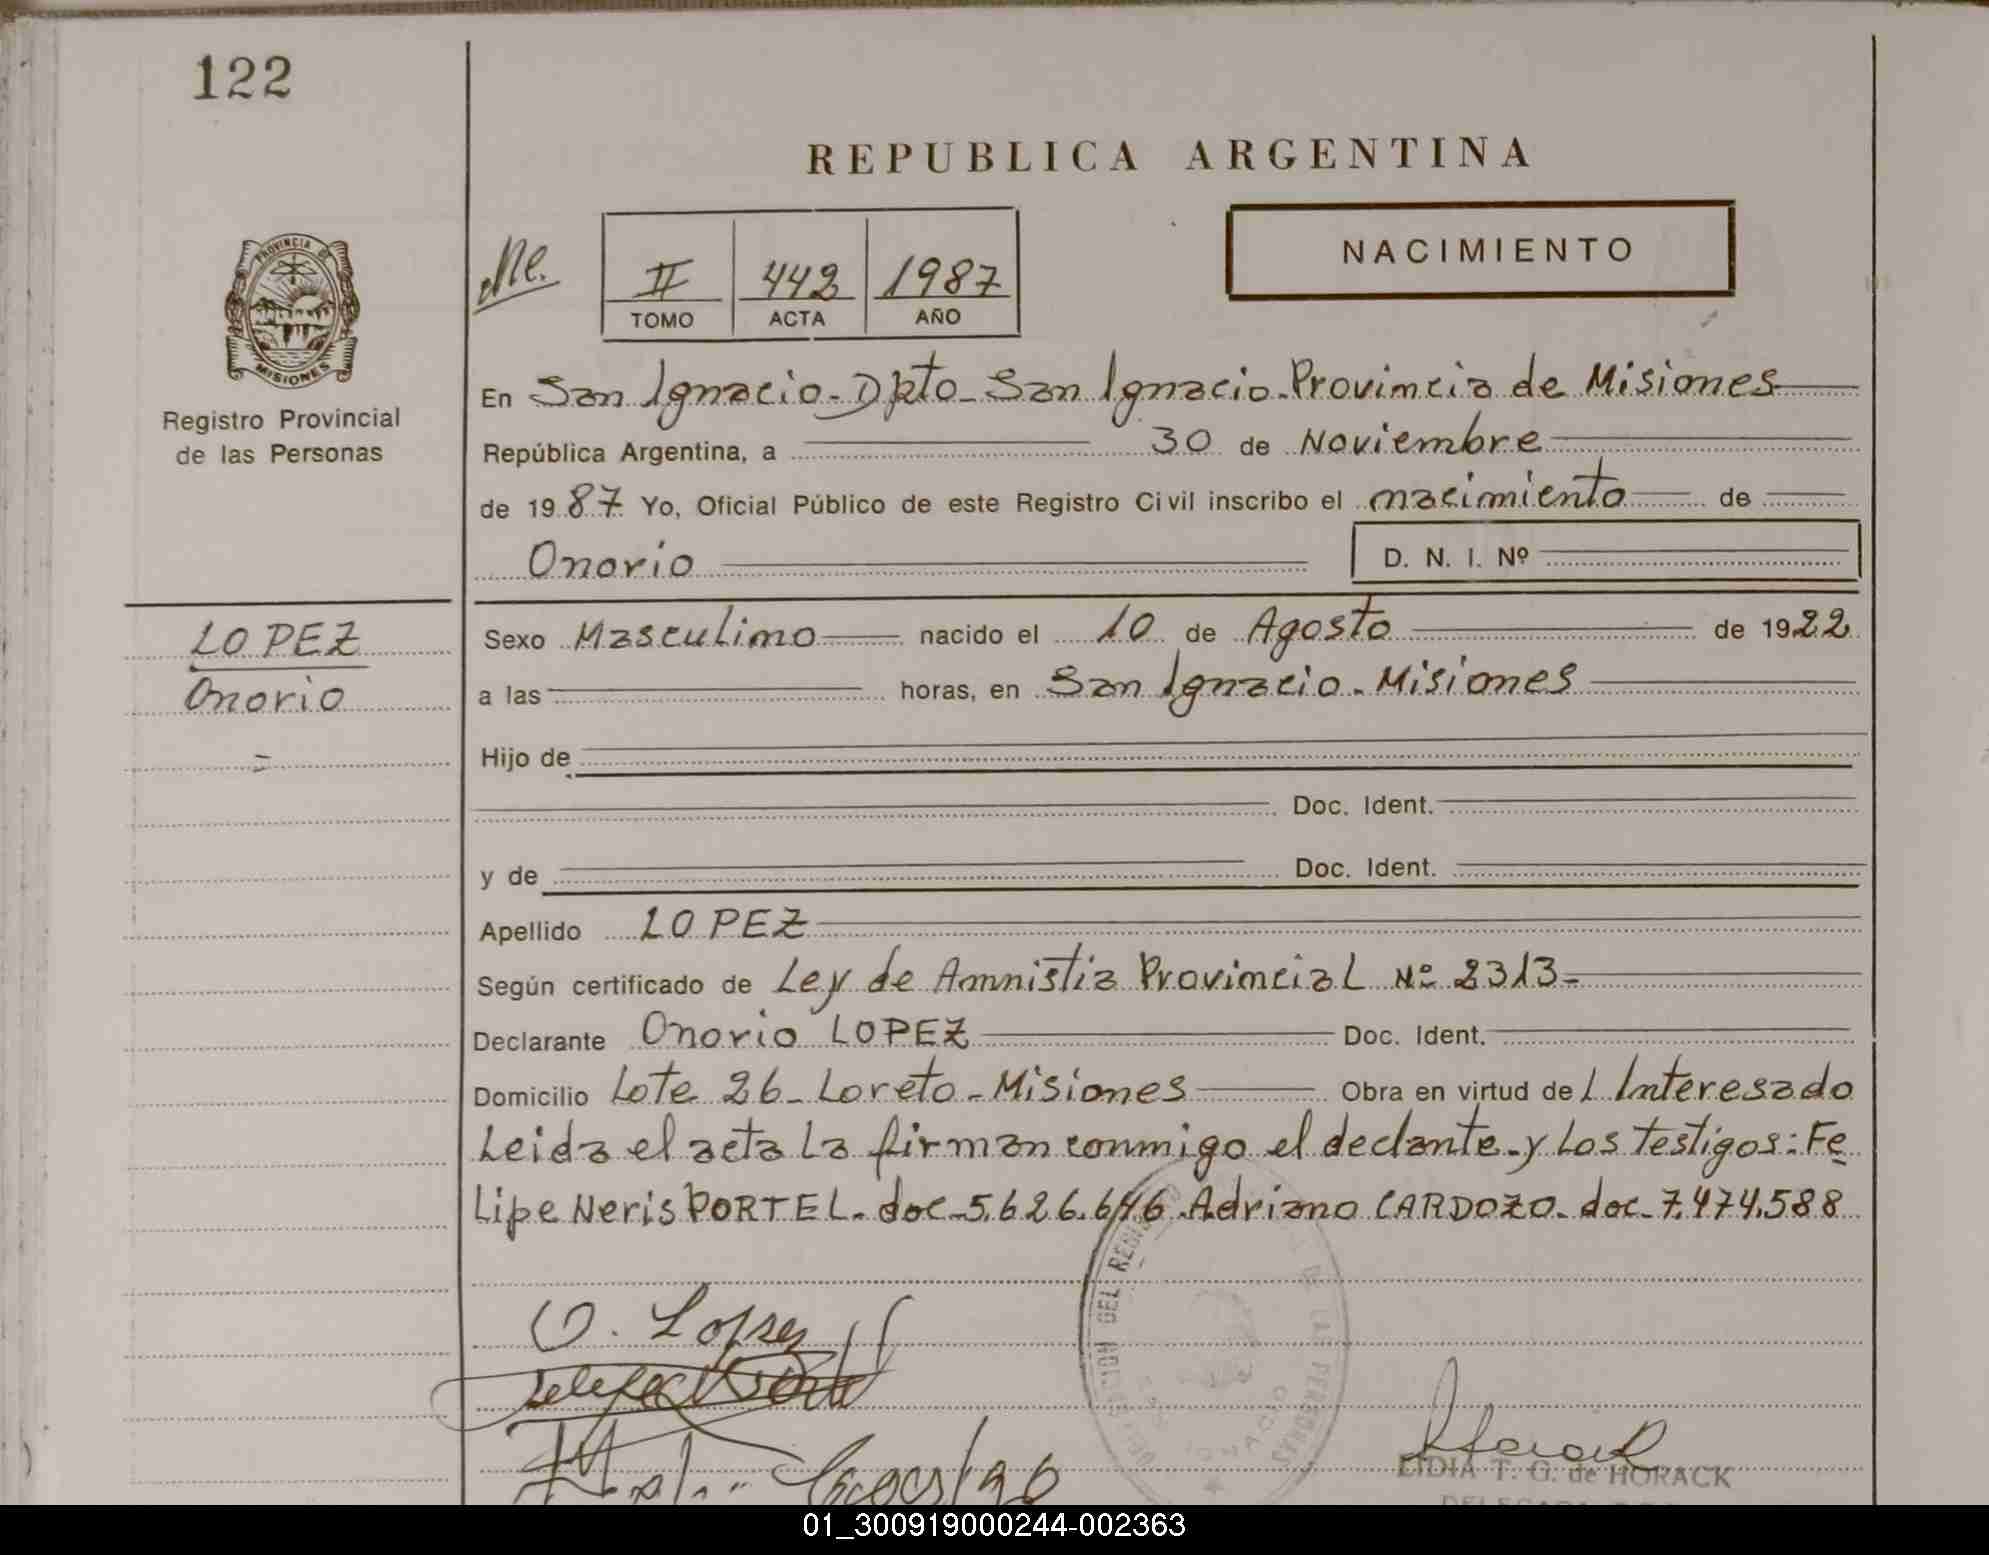 122
REPUBLICA ARGENTINA
Me.
II 442 1987
TOMO ACTA AÑO
NACIMIENTO
PROVINCIA DE
MISIONES
Registro Provincial
de las Personas
En San Ignacio - Dpto - San Ignacio - Provincia de Misiones
República Argentina, a 30 de Noviembre
de 1987 Yo, Oficial Público de este Registro Civil inscribo el nacimiento de
Onorio D. N. I. Nº
LOPEZ
Onorio
=
Sexo Masculino nacido el 10 de Agosto de 1922
a las horas, en San Ignacio - Misiones
Hijo de
Doc. Ident.
y de Doc. Ident.
Apellido LOPEZ
Según certificado de Ley de Amnistia Provincial Nº 2313-
Declarante Onorio LOPEZ Doc. Ident.
Domicilio Lote 26 - Loreto - Misiones Obra en virtud del Interesado
Leida el acta la firman conmigo el declante - y los testigos: Fe
lipe Neris PORTEL - doc - 5.626.646 Adriano CARDOZO - doc - 7.474.588
O. Lopez
LIDIA T. G. de HORACK
01_300919000244-002363